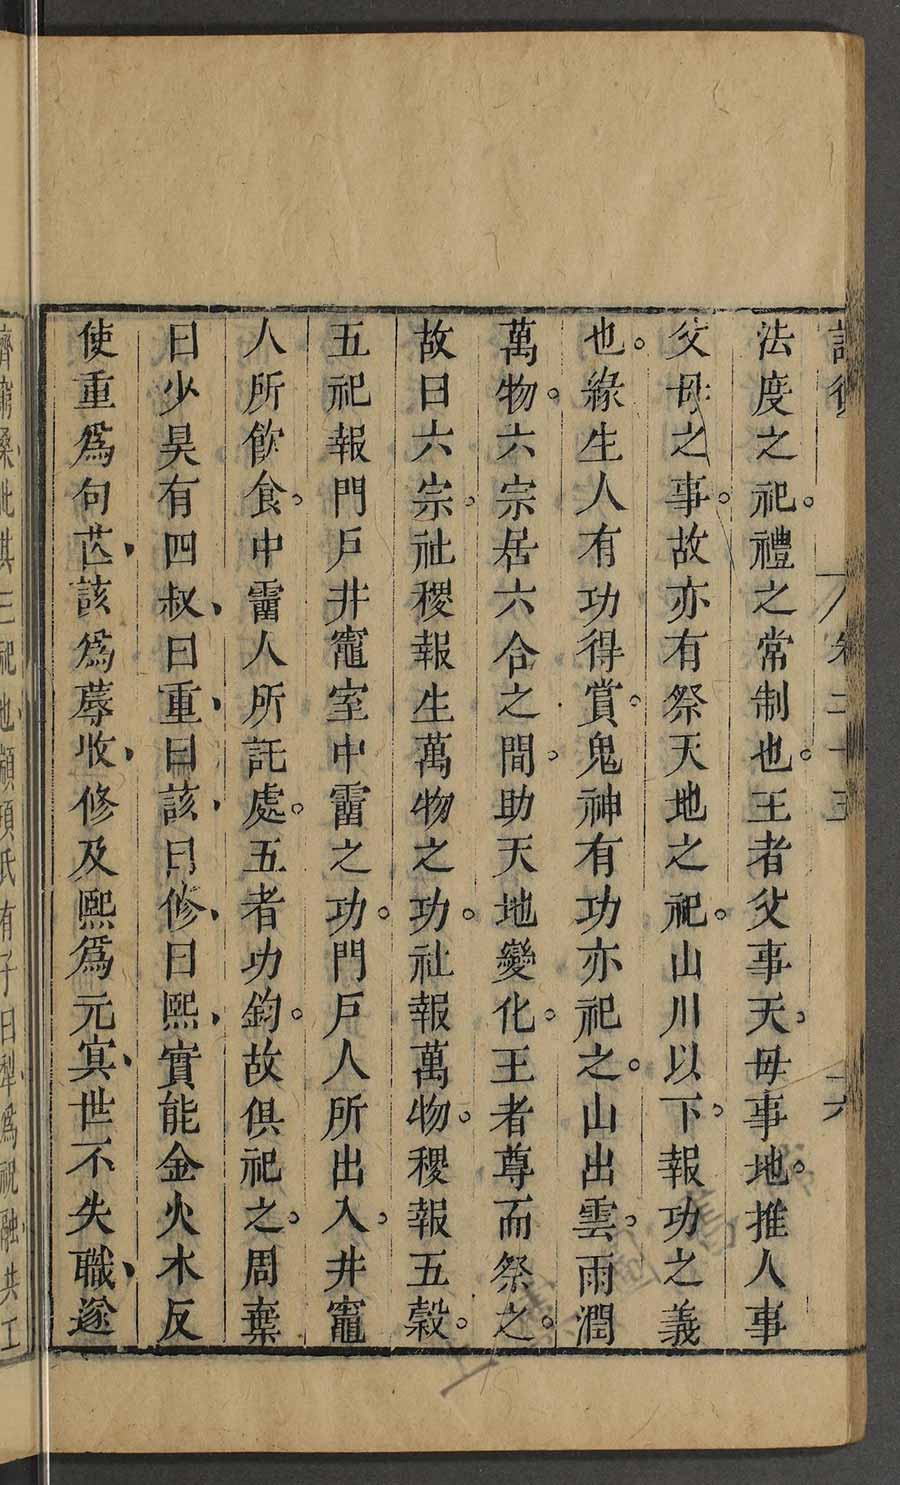 論衡 卷二十五 六
法度之祀。禮之常制也。王者父事天、母事地。推人事
父母之事。故亦有祭天地之祀。山川以下。報功之義
也。緣生人有功得賞。鬼神有功亦祀之。山出雲。雨潤
萬物。六宗居六合之間。助天地變化。王者尊而祭之。
故曰六宗。社稷報生萬物之功。社報萬物。稷報五穀。
五祀報門戶井竈室中霤之功。門戶人所出入。井竈
人所飲食。中霤人所託處。五者功鈞。故俱祀之。周棄
曰少昊有四叔、曰重、曰該、曰修、曰熙、實能金火木反
使重爲句芒、該爲蓐收、修及熙爲元冥、世不失職、遂
濟窮桑、此其三祀也、顓頊氏有子曰犂、爲祝融、共工